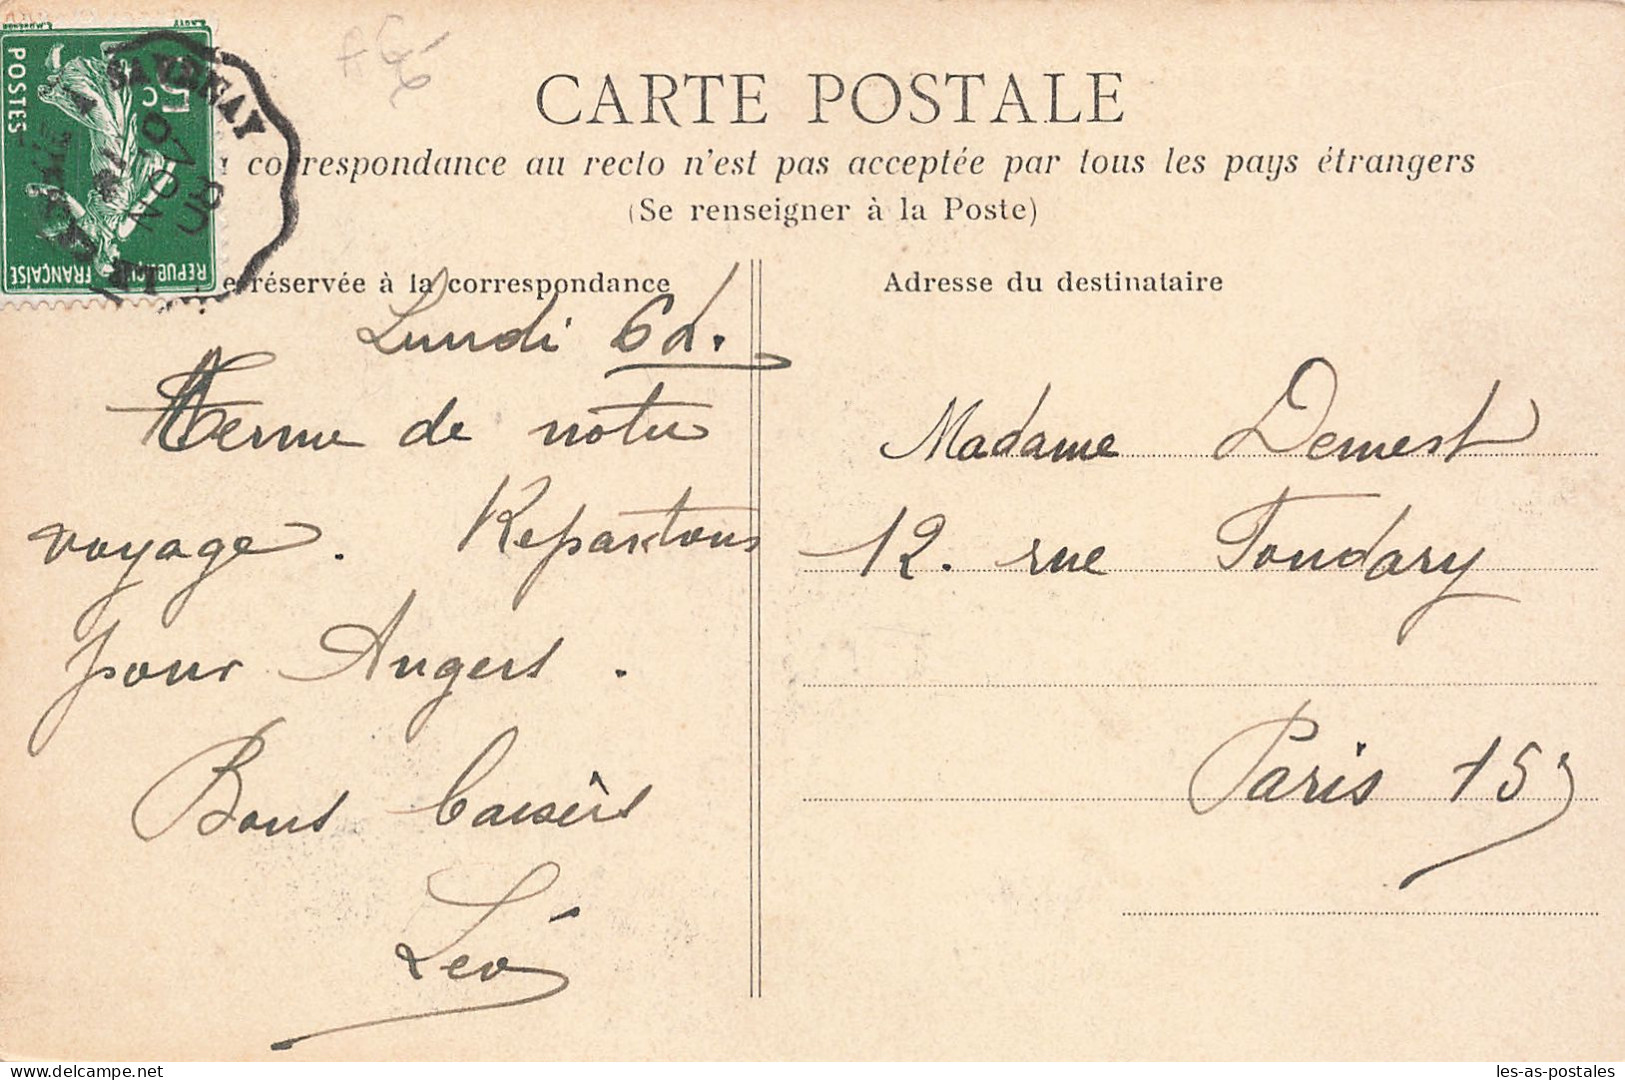 CARTE POSTALE
correspondance au recto n'est pas acceptée par tous les pays étrangers
(Se renseigner à la Poste)
e réservée à la correspondance
Adresse du destinataire
POSTES
5 c
REPUBLIQUE FRANÇAISE
SAVENAY
Lundi 6h.
Terme de notre
voyage. Repartons
pour Angers.
Bons baisers
Léo
Madame Demest
12. rue Fondary
Paris 15
les-as-postales
delcampe.net